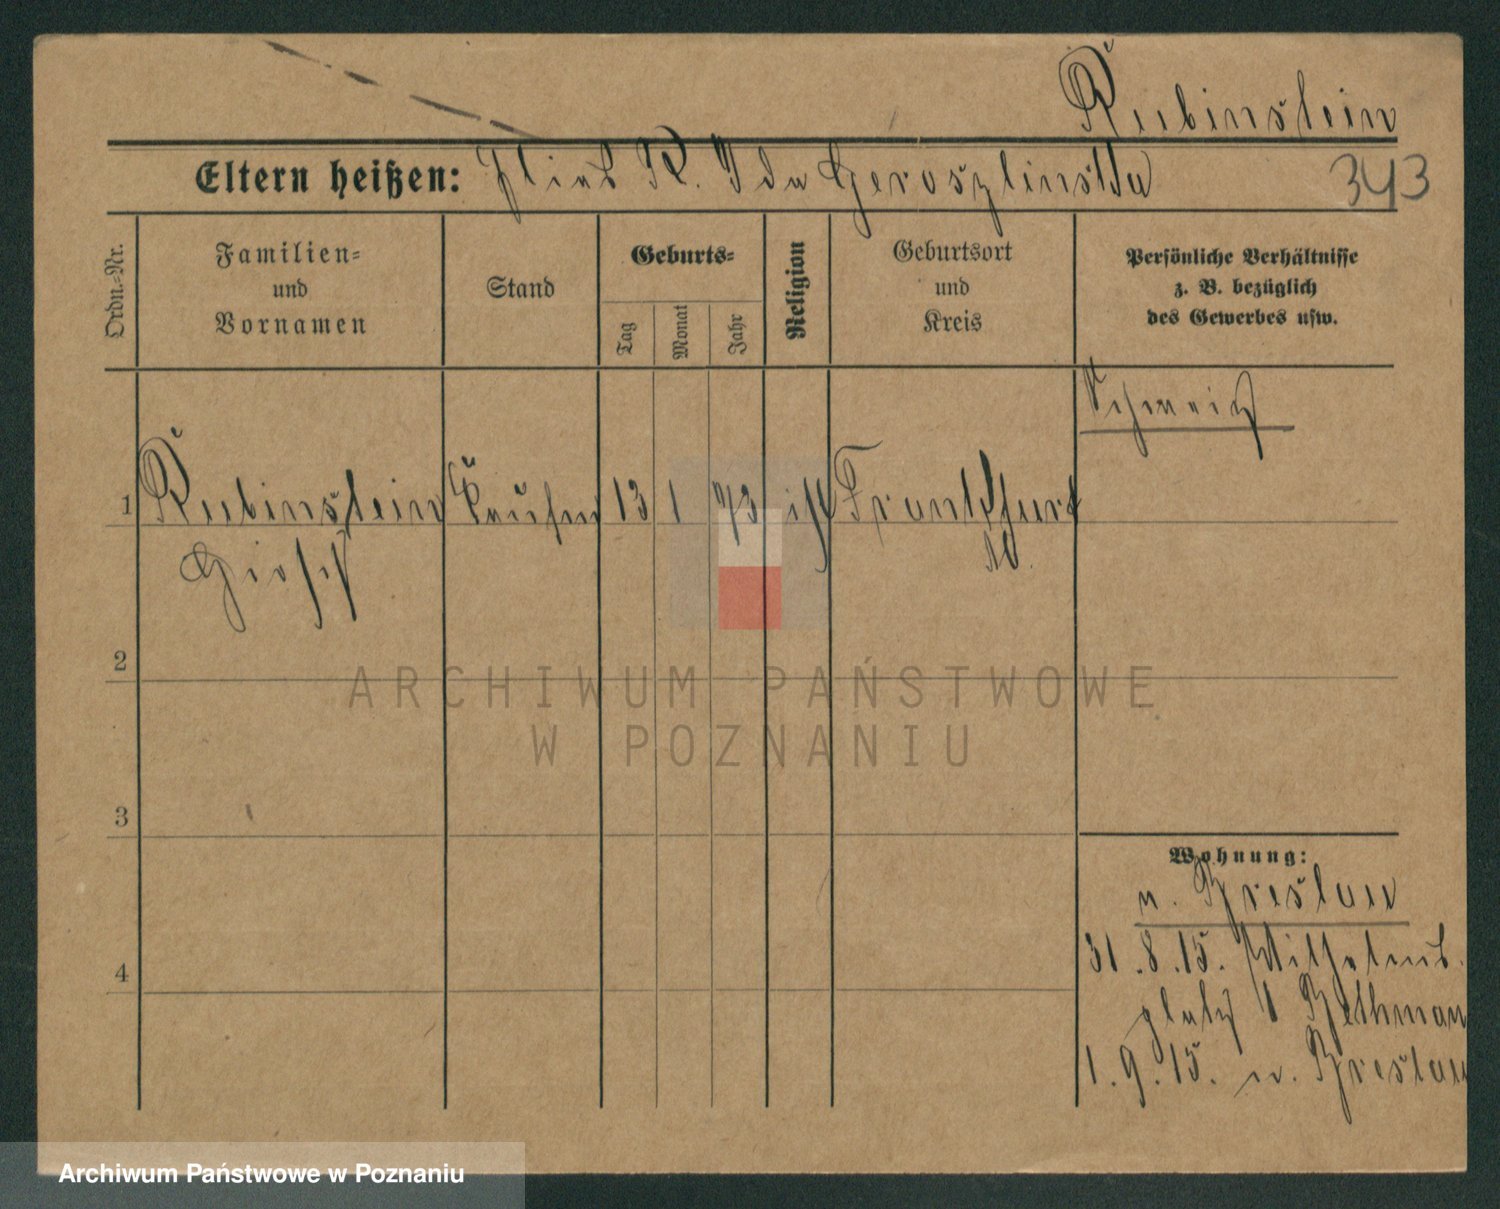 Rubinstein
Eltern heißen: Elias R. Ida Geroszlinska 343
Ordn.-Nr.
Familien- und Vornamen
Stand
Geburts-
Tag
Monat
Jahr
Religion
Geburtsort und Kreis
Persönliche Verhältnisse
z. B. bezüglich
des Gewerbes usw.
Schweiz
1 Rubinstein Kaufm 13 1 73 Frankfurt
2
3
4
Wohnung:
n. Breslau
31.8.15. Wilhelms
platz 1 Bethman
1.9.15. n. Breslau
ARCHIWUM PAŃSTWOWE
W POZNANIU
Archiwum Państwowe w Poznaniu